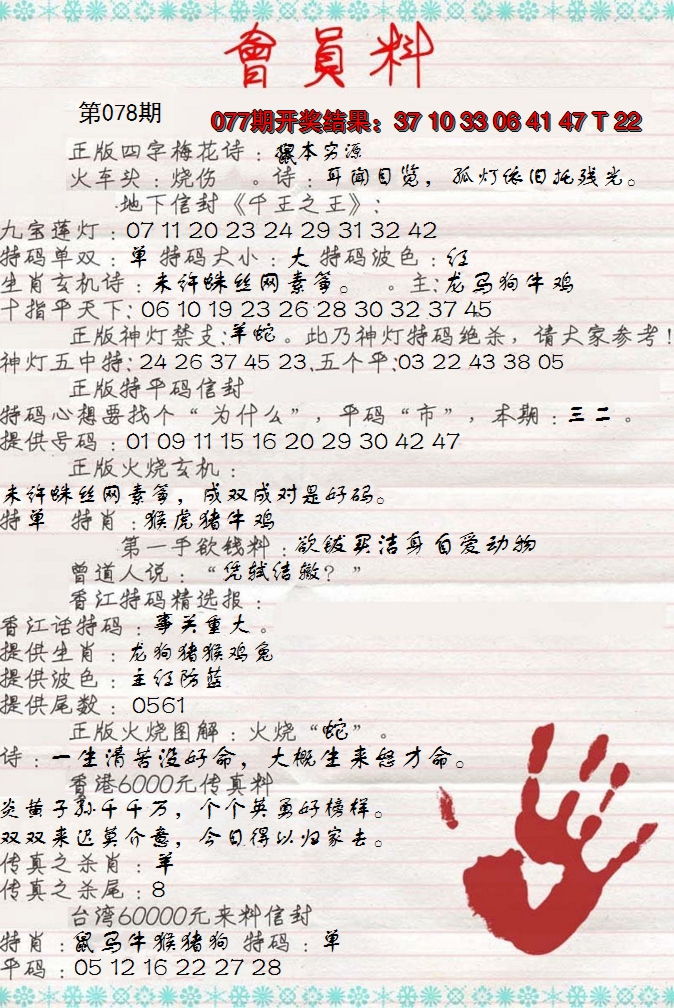 會員料
第078期
077期开奖结果：37 10 33 06 41 47 T 22
正版四字梅花诗：鼠本穷源
火车头：烧伤 。诗：耳闻目览，孤灯依旧托残光。
地下信封《千王之王》：
九宝莲灯：07 11 20 23 24 29 31 32 42
特码单双：单 特码大小：大 特码波色：红
生肖玄机诗：未许蛛丝网素筝。 。主：龙马狗牛鸡
十指平天下：06 10 19 23 26 28 30 32 37 45
正版神灯禁支：羊蛇。此乃神灯特码绝杀，请大家参考！
神灯五中特：24 26 37 45 23.五个平：03 22 43 38 05
正版特平码信封
特码心想要找个“为什么”，平码“市”，本期：三二。
提供号码：01 09 11 15 16 20 29 30 42 47
正版火烧玄机：
未许蛛丝网素筝，成双成对是好码。
特单 特肖：猴虎猪牛鸡
第一手欲钱料：欲钱买洁身自爱动物
曾道人说：“凭轼结辙？”
香江特码精选报：
香江话特码：事关重大。
提供生肖：龙狗猪猴鸡兔
提供波色：主红防蓝
提供尾数：0561
正版火烧图解：火烧“蛇”。
诗：一生清苦没好命，大概生来怒才命。
香港6000元传真料
炎黄子孙千千万，个个英勇好榜样。
双双来迟莫介意，今日得以归家去。
传真之杀肖：羊
传真之杀尾：8
台湾60000元来料信封
特肖：鼠马牛猴猪狗 特码：单
平码：05 12 16 22 27 28